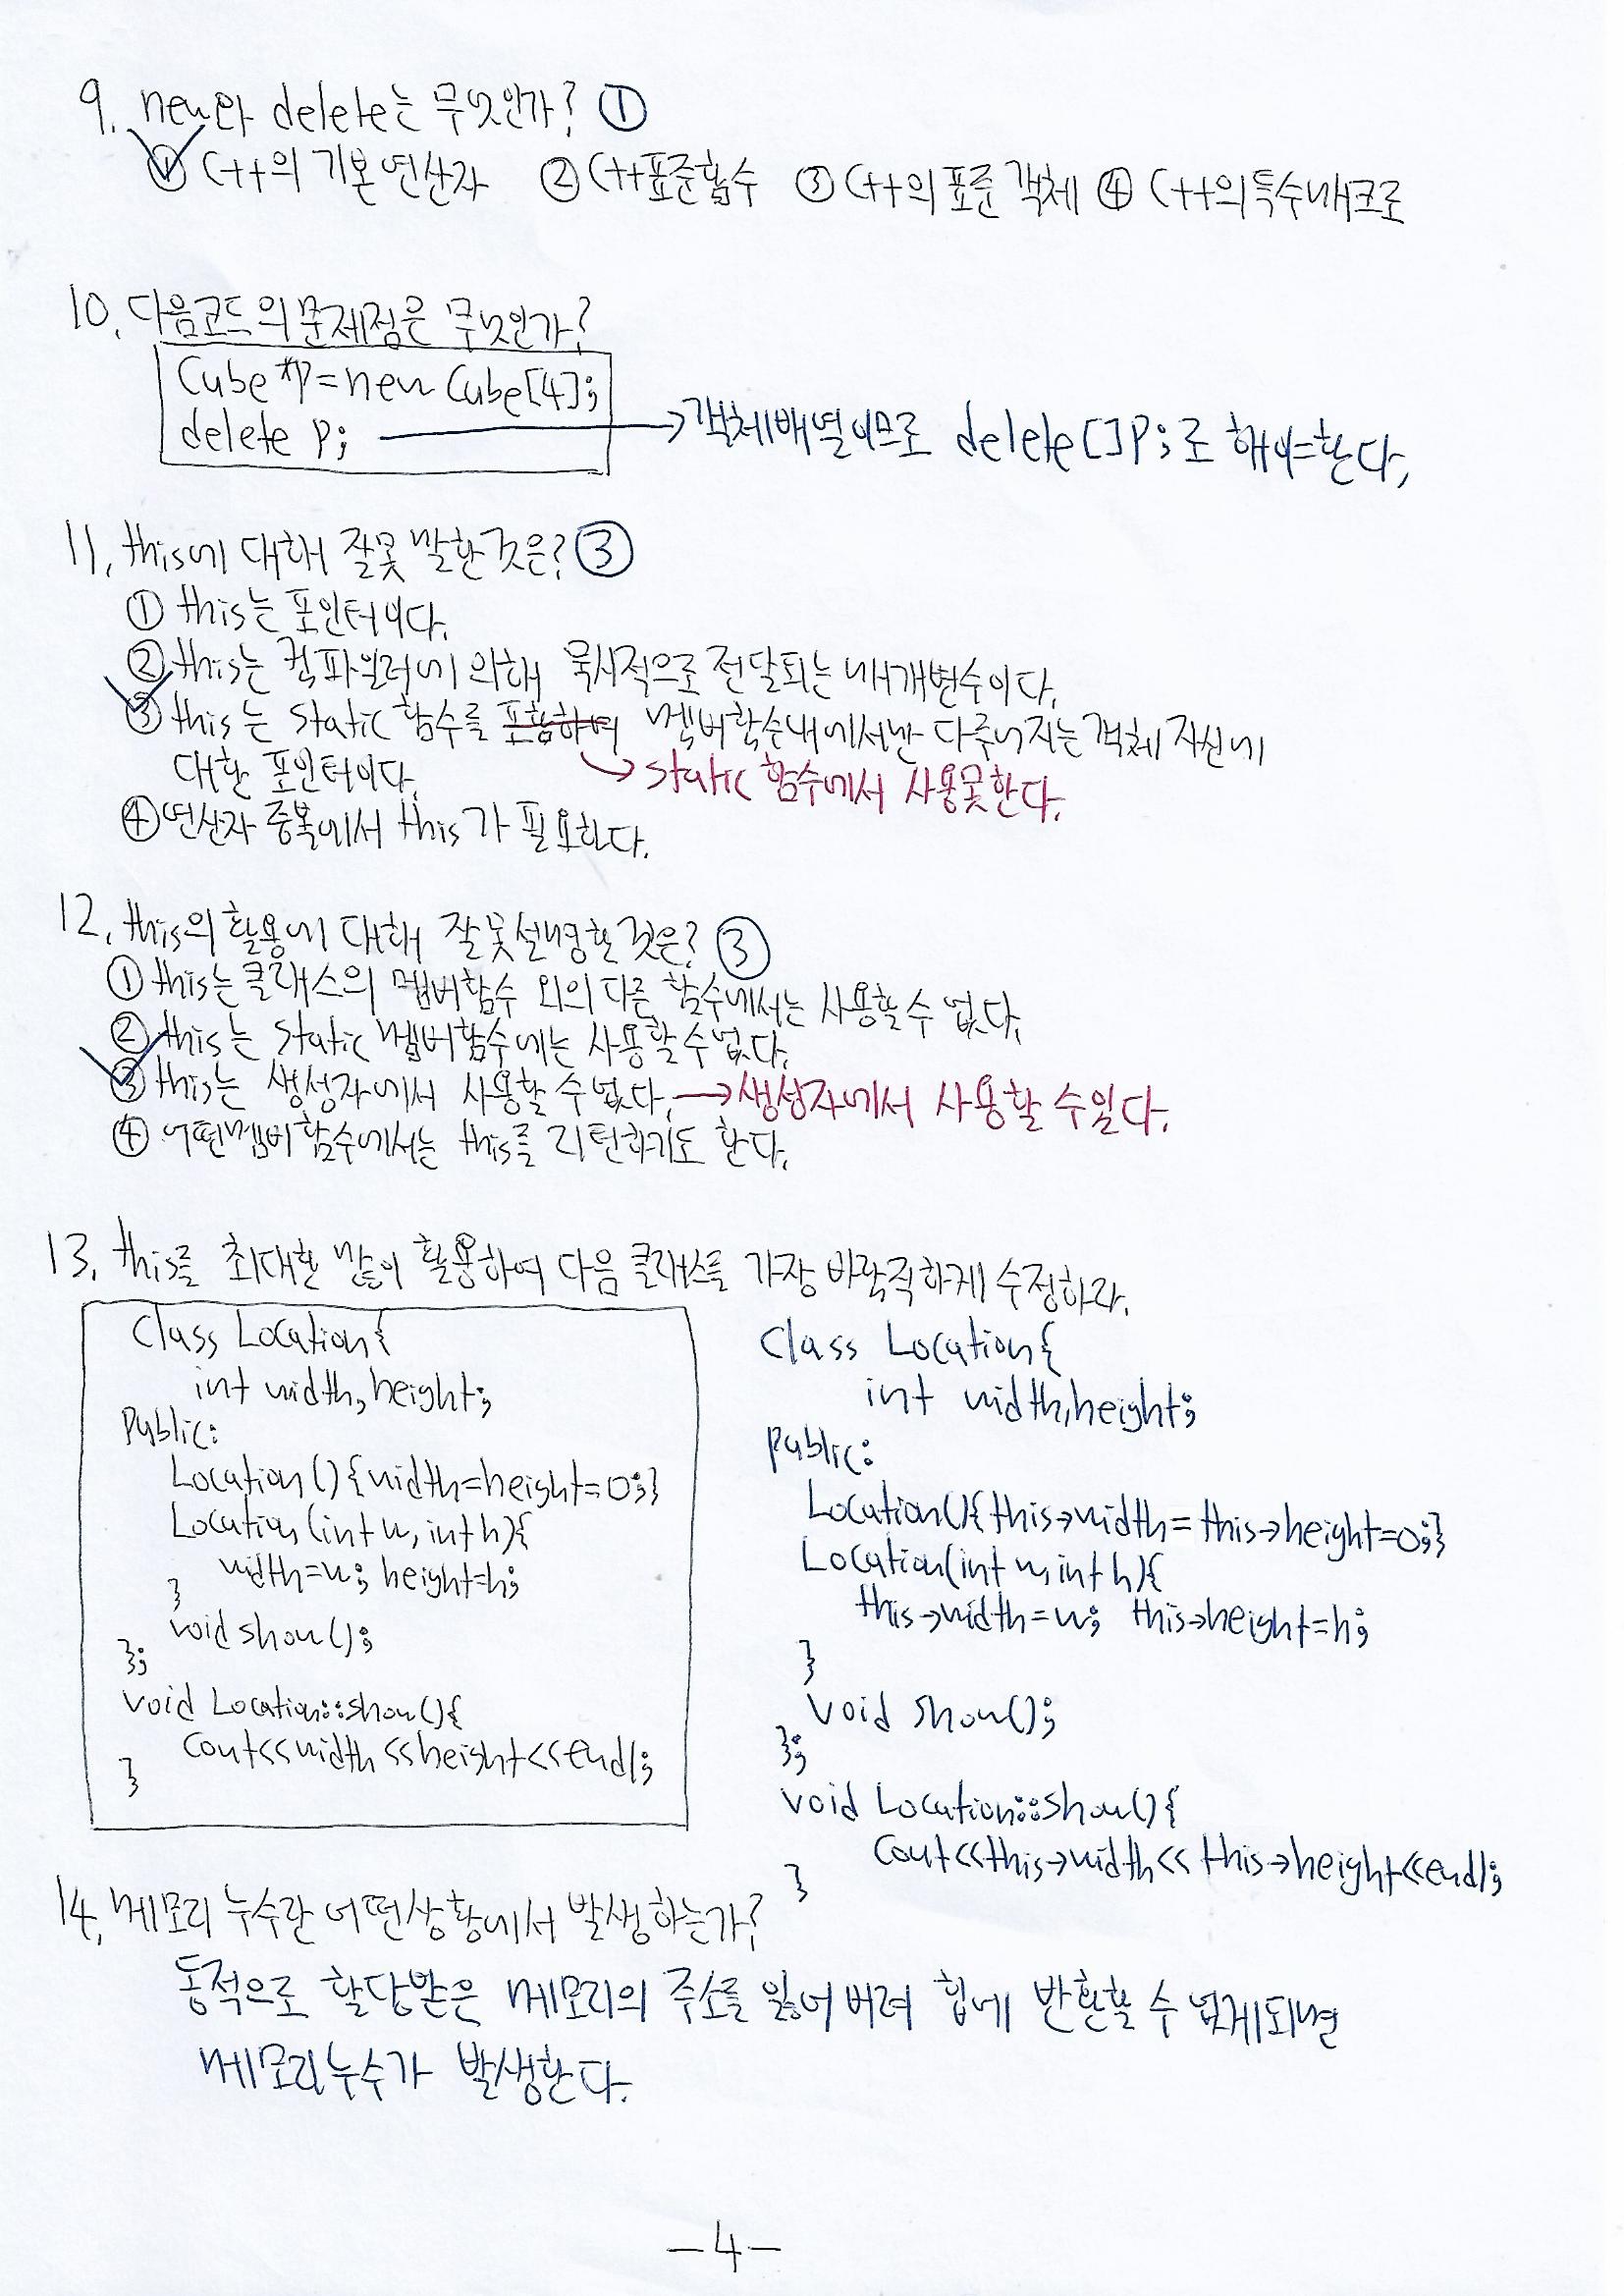 9. new와 delete는 무엇인가? ①
① C++의 기본연산자 ② C++표준함수 ③ C++의 표준 객체 ④ C++의 특수매크로
10. 다음코드의 문제점은 무엇인가?
Cube *p=new Cube[4];
delete p; → 객체배열이므로 delete[]p;로 해야한다.
11. this에 대해 잘못 말한것은? ③
① this는 포인터이다.
② this는 컴파일러에 의해 묵시적으로 전달되는 매개변수이다.
③ this는 static 함수를 포함하여 멤버함수내에서만 다루어지는 객체 자신에
대한 포인터이다. → static 함수에서 사용못한다.
④ 연산자 중복에서 this가 필요하다.
12. this의 활용에 대해 잘못설명한 것은? ③
① this는 클래스의 멤버함수 외의 다른 함수에서는 사용할 수 없다.
② this는 static 멤버함수에는 사용할 수 없다.
③ this는 생성자에서 사용할 수 없다. → 생성자에서 사용할 수있다.
④ 어떤멤버함수에서는 this를 리턴하기도 한다.
13. this를 최대한 많이 활용하여 다음 클래스를 가장 바람직하게 수정하라.
class Location{
int width,height;
public:
Location(){width=height=0;}
Location(int w, int h){
width=w; height=h;
}
void show();
};
void Location::show(){
cout<<width<<height<<endl;
}
class Location{
int width,height;
public:
Location(){this→width=this→height=0;}
Location(int w, int h){
this→width=w; this→height=h;
}
void show();
};
void Location::show(){
cout<<this→width<<this→height<<endl;
}
14. 메모리 누수란 어떤상황에서 발생하는가?
동적으로 할당받은 메모리의 주소를 잃어버려 힙에 반환할 수 없게되면
메모리누수가 발생한다.
-4-